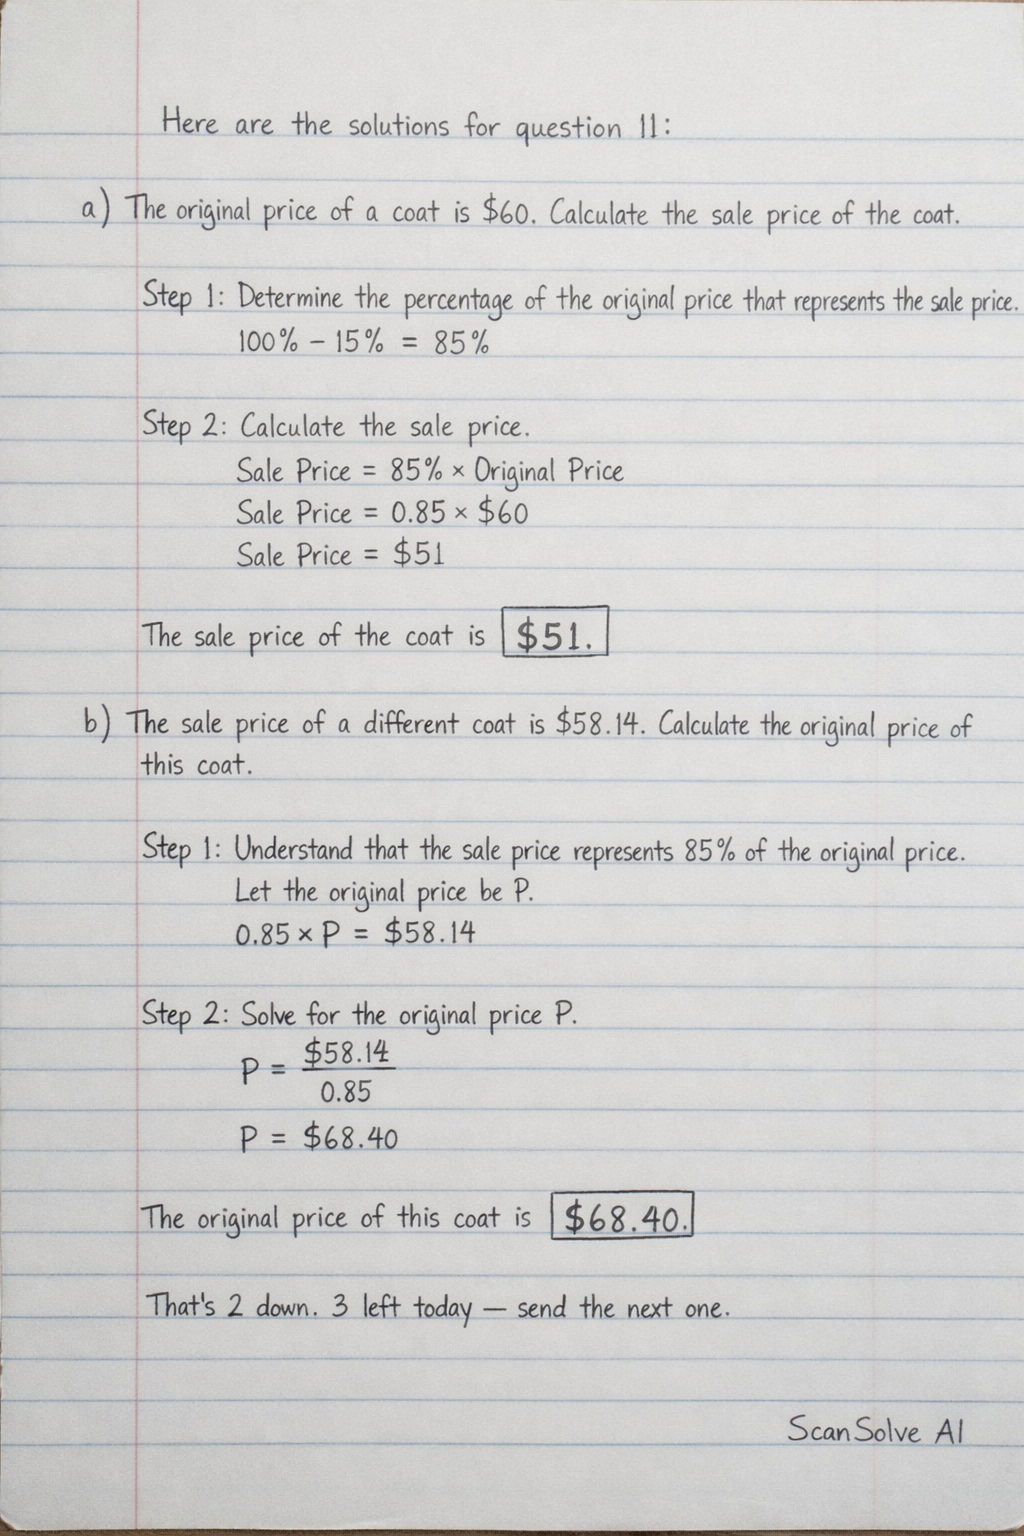 Here are the solutions for question 11:
a) The original price of a coat is $60. Calculate the sale price of the coat.
Step 1: Determine the percentage of the original price that represents the sale price.
100% - 15% = 85%
Step 2: Calculate the sale price.
Sale Price = 85% × Original Price
Sale Price = 0.85 × $60
Sale Price = $51
The sale price of the coat is $51.
b) The sale price of a different coat is $58.14. Calculate the original price of
this coat.
Step 1: Understand that the sale price represents 85% of the original price.
Let the original price be P.
0.85 × P = $58.14
Step 2: Solve for the original price P.
P = $58.14 / 0.85
P = $68.40
The original price of this coat is $68.40.
That's 2 down. 3 left today — send the next one.
ScanSolve AI